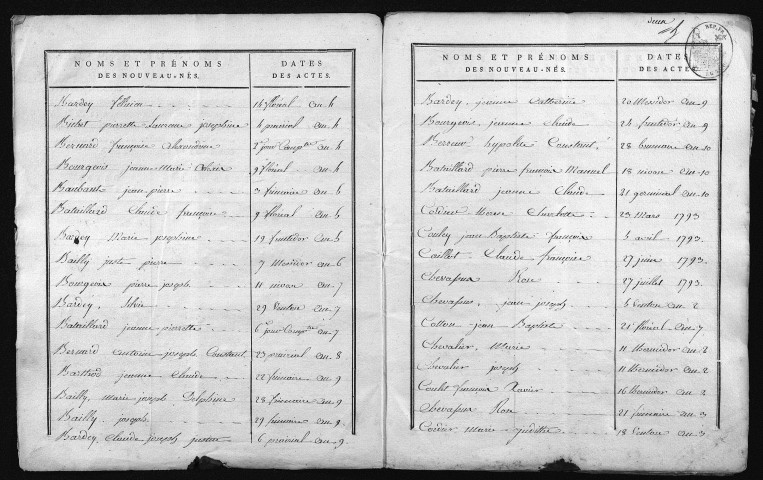 NOMS ET PRÉNOMS DES NOUVEAU-NÉS.
DATES DES ACTES.
Bardey 14 floréal an 4
Bichet pierrette Laurence josephine 4 prairial an 4
Bernard françoise 2e jour Comp.re an 4
Bourgeois jeanne Marie 9 floréal an 4
jean pierre 3 frimaire an 6
Bataillard Claude françois 9 floréal an 5
Bardey Marie josephine 19 fructidor an 5
Bailly juste pierre 7 Messidor an 6
Bourgeois pierre joseph 11 nivose an 7
Bardey 29 Ventose an 7
Bataillard jeanne pierrette 6 jour Comp.re an 7
Bernard antoine joseph Constant 23 prairial an 8
Barthod jeanne Claude 22 frimaire an 9
Bailly marie joseph Delphine 28 frimaire an 9
Bailly joseph 29 frimaire an 9
Bardey Claude joseph justin 6 prairial an 9
deux
NOMS ET PRÉNOMS DES NOUVEAU-NÉS.
DATES DES ACTES.
Bardey jeanne Catherine 20 Messidor an 9
Bourgeois jeanne Claude 24 fructidor an 9
hypolite Constant 28 brumaire an 10
Bataillard pierre françois Manuel 18 nivose an 10
Bataillard jeanne Claude 21 germinal an 10
23 Mars 1793
jean Baptiste françois 3 avril 1793
Caillot Claude françoise 27 juin 1793
Chevassus Rose 27 juillet 1793
Chevassus jean joseph 5 Ventose an 2
Cotton jean Baptiste 21 floréal an 7
Chevalier Marie 11 thermidor an 2
Chevalier joseph 11 thermidor an 2
françois Xavier 16 thermidor an 3
Chevassus Rose 21 frimaire an 3
Cordier Marie judithe 18 Ventose an 3